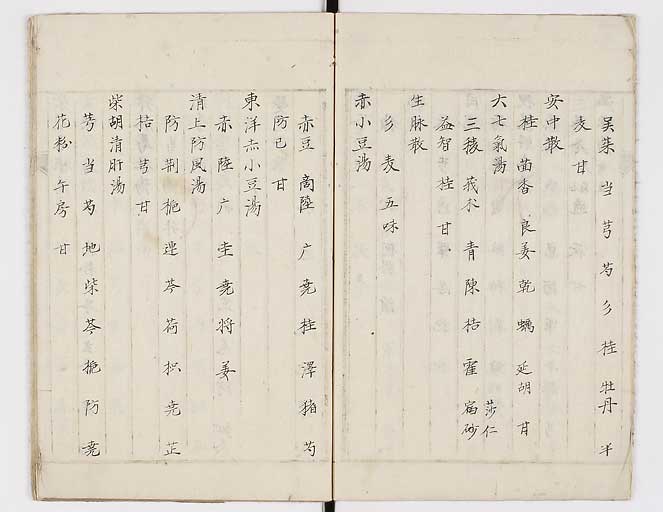 吴茱 当 芎 芍 彡 桂 牡丹 半
麦 甘
安中散
桂 茴香 良姜 乾 蠣 延胡 甘
大七氣湯 莎仁
三稜 莪朮 青 陳 桔 藿 宿砂
益智 桂 甘
生脉散
彡 麦 五味
赤小豆湯
赤豆 商陸 广 尭 桂 澤 猪 芍
防已 甘
東洋赤小豆湯
赤 陸 广 尭 将 姜
清上防風湯
防 荆 栀 連 芩 荷 枳 尭 芷
桔 芎 甘
柴胡清肝湯
芎 当 芍 地 柴 芩 栀 防 尭
花粉 午房 甘